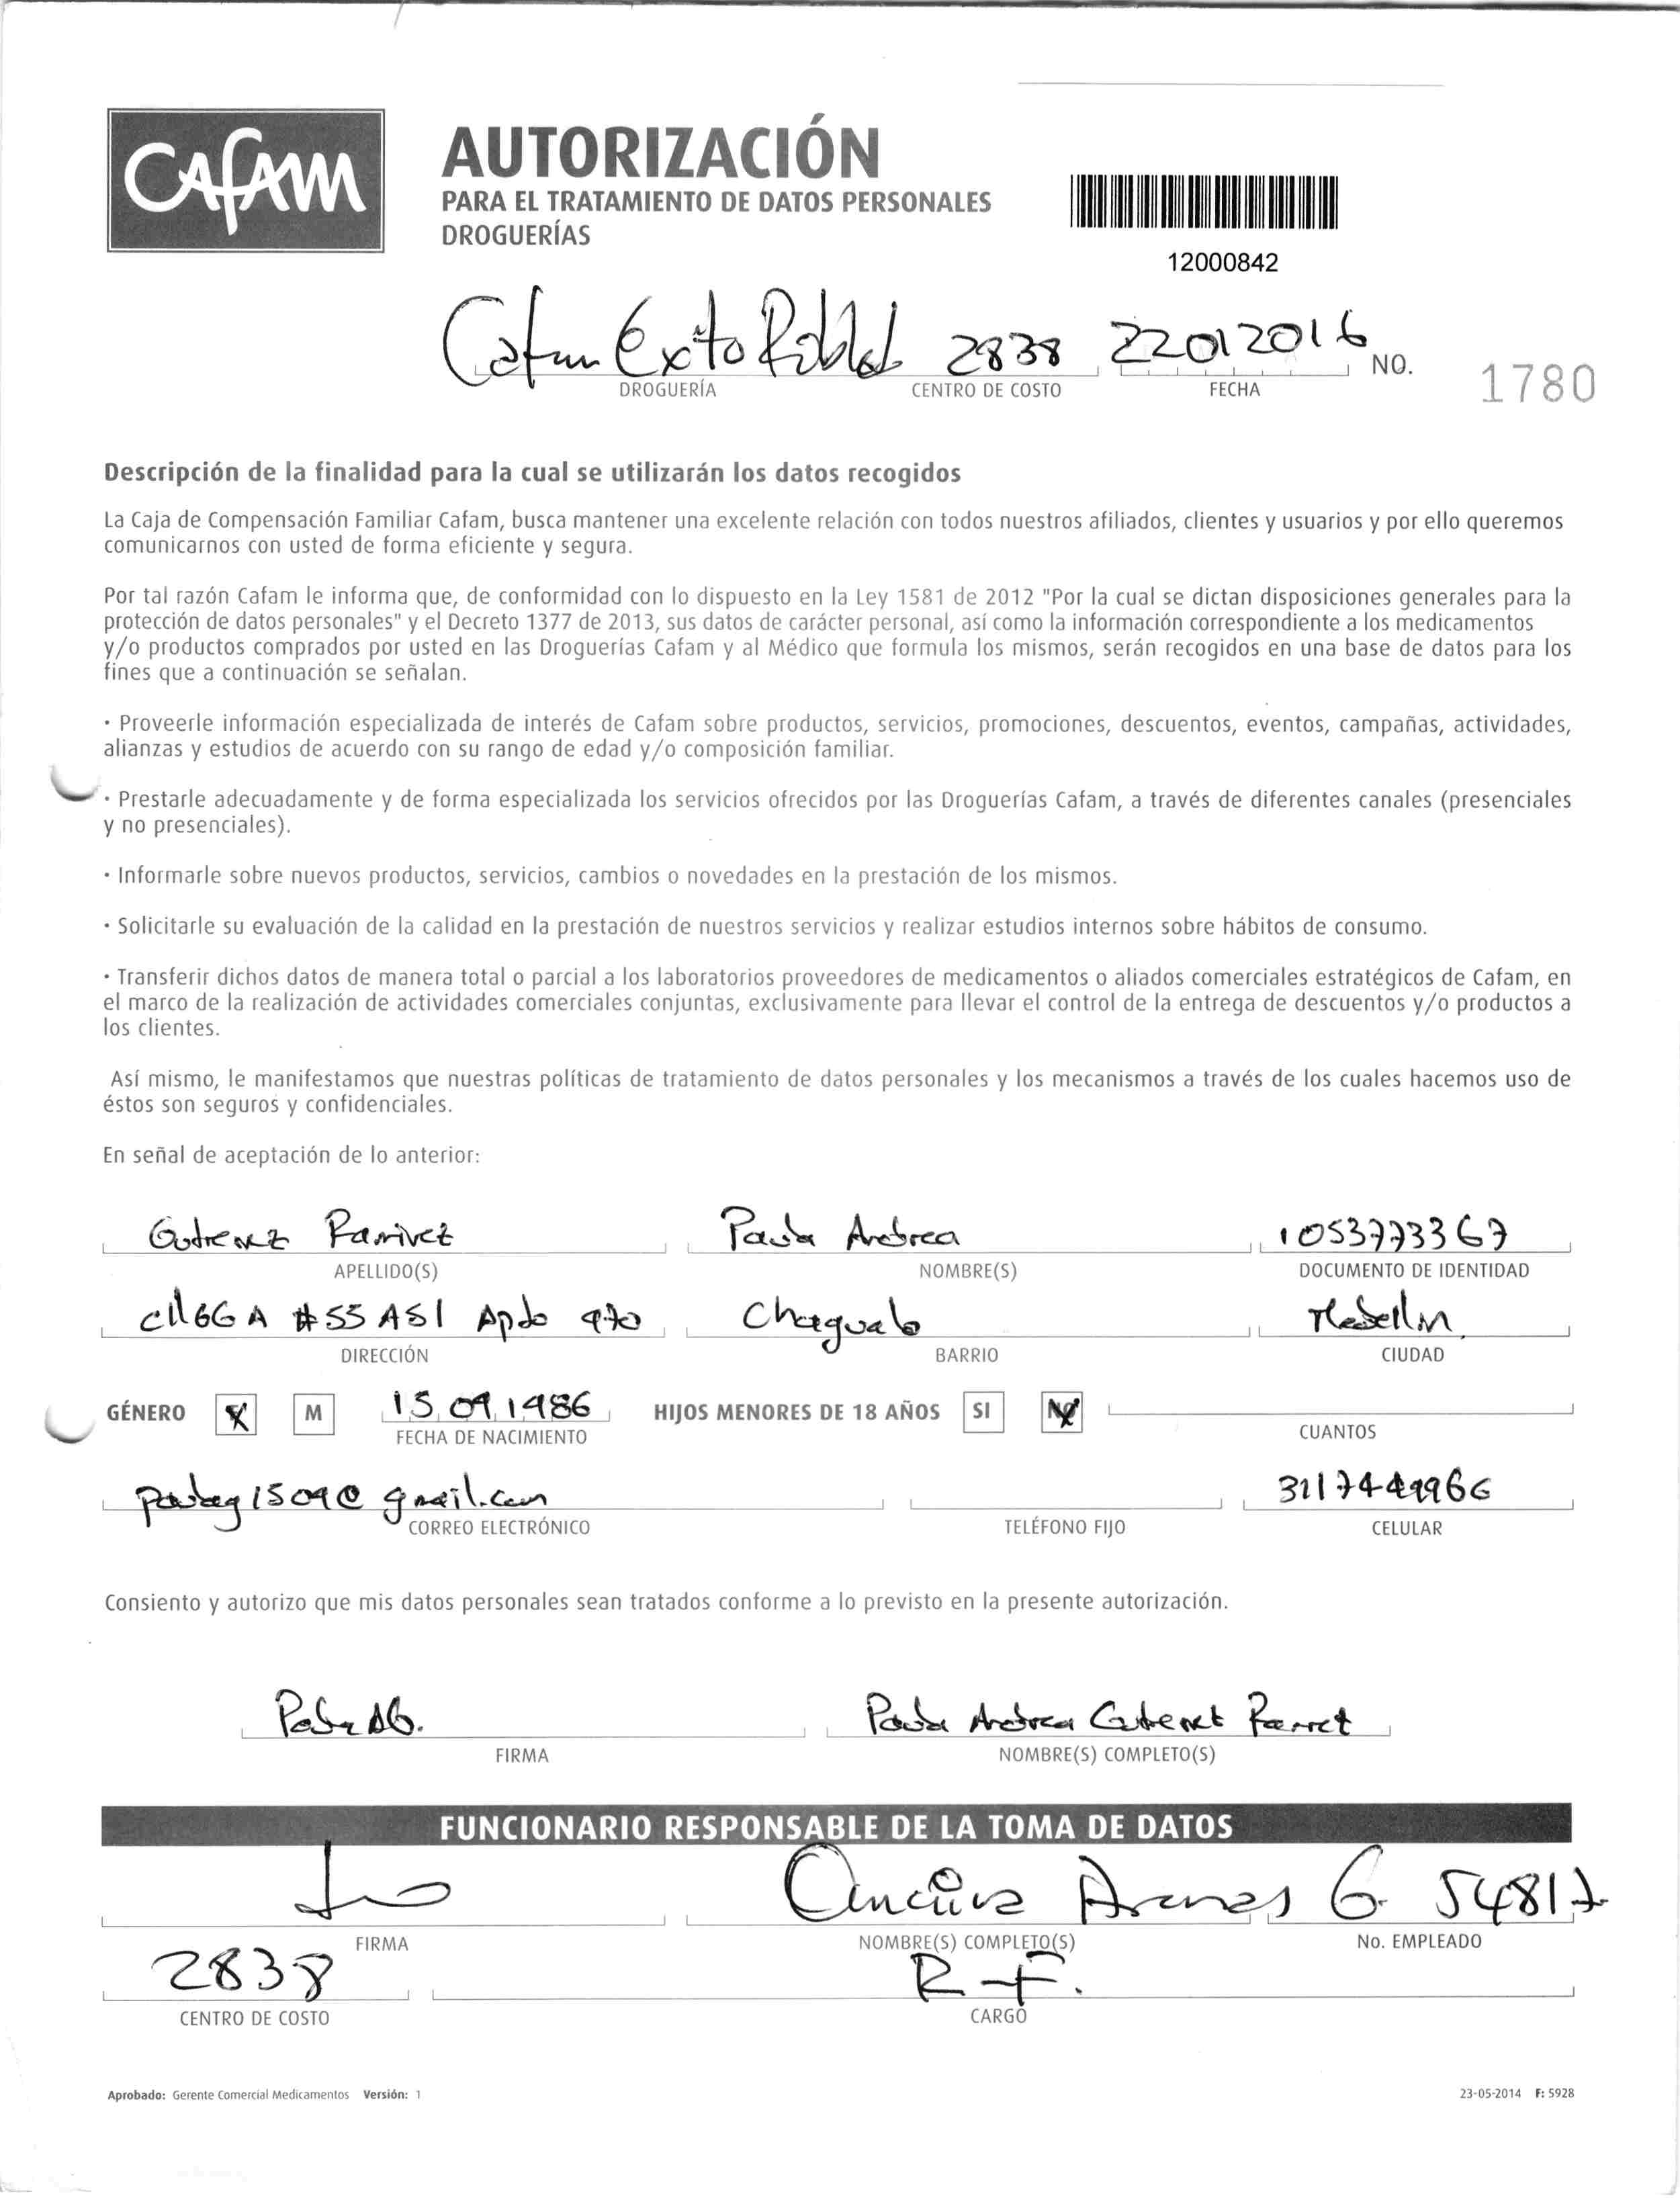 CAFAM
AUTORIZACIÓN
PARA EL TRATAMIENTO DE DATOS PERSONALES
DROGUERÍAS
12000842
Cafam Exito Poblad 2838 22012016 NO. 1780
DROGUERÍA CENTRO DE COSTO FECHA
Descripción de la finalidad para la cual se utilizarán los datos recogidos
La Caja de Compensación Familiar Cafam, busca mantener una excelente relación con todos nuestros afiliados, clientes y usuarios y por ello queremos
comunicarnos con usted de forma eficiente y segura.
Por tal razón Cafam le informa que, de conformidad con lo dispuesto en la Ley 1581 de 2012 "Por la cual se dictan disposiciones generales para la
protección de datos personales" y el Decreto 1377 de 2013, sus datos de carácter personal, así como la información correspondiente a los medicamentos
y/o productos comprados por usted en las Droguerías Cafam y al Médico que formula los mismos, serán recogidos en una base de datos para los
fines que a continuación se señalan.
· Proveerle información especializada de interés de Cafam sobre productos, servicios, promociones, descuentos, eventos, campañas, actividades,
alianzas y estudios de acuerdo con su rango de edad y/o composición familiar.
· Prestarle adecuadamente y de forma especializada los servicios ofrecidos por las Droguerías Cafam, a través de diferentes canales (presenciales
y no presenciales).
· Informarle sobre nuevos productos, servicios, cambios o novedades en la prestación de los mismos.
· Solicitarle su evaluación de la calidad en la prestación de nuestros servicios y realizar estudios internos sobre hábitos de consumo.
· Transferir dichos datos de manera total o parcial a los laboratorios proveedores de medicamentos o aliados comerciales estratégicos de Cafam, en
el marco de la realización de actividades comerciales conjuntas, exclusivamente para llevar el control de la entrega de descuentos y/o productos a
los clientes.
Así mismo, le manifestamos que nuestras políticas de tratamiento de datos personales y los mecanismos a través de los cuales hacemos uso de
éstos son seguros y confidenciales.
En señal de aceptación de lo anterior:
Gutierrez Ramirez Paula Andrea 1053773367
APELLIDO(S) NOMBRE(S) DOCUMENTO DE IDENTIDAD
cll 66 A #55 A51 Apdo Chagualo Medellin
DIRECCIÓN BARRIO CIUDAD
GÉNERO X M 15 09 1986 HIJOS MENORES DE 18 AÑOS SI NO
FECHA DE NACIMIENTO CUANTOS
paulag1509@gmail.com 3117449966
CORREO ELECTRÓNICO TELÉFONO FIJO CELULAR
Consiento y autorizo que mis datos personales sean tratados conforme a lo previsto en la presente autorización.
Paula AG. Paula Andrea Gutierrez Ramirez
FIRMA NOMBRE(S) COMPLETO(S)
FUNCIONARIO RESPONSABLE DE LA TOMA DE DATOS
G. 54817
FIRMA NOMBRE(S) COMPLETO(S) No. EMPLEADO
2838 R-F.
CENTRO DE COSTO CARGO
Aprobado: Gerente Comercial Medicamentos Versión: 1 23-05-2014 F: 5928